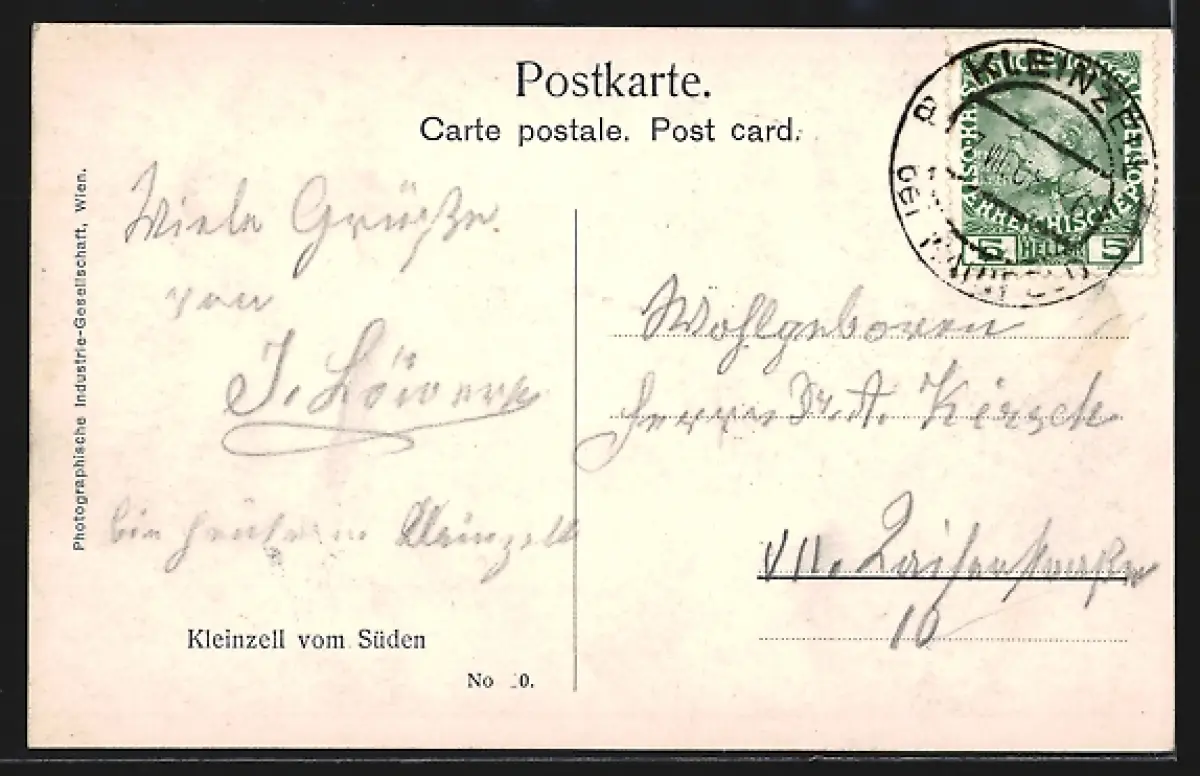 Postkarte.
Carte postale. Post card.
Photographische Industrie-Gesellschaft, Wien.
Viele Grüße
von
J. Löwe
bin heute in Kleinzell
Kleinzell vom Süden
No 0.
KLEINZELL
bei
HELLER
5 5
Wohlgeboren
Herrn Dr. A. Kirsch
VII.
10